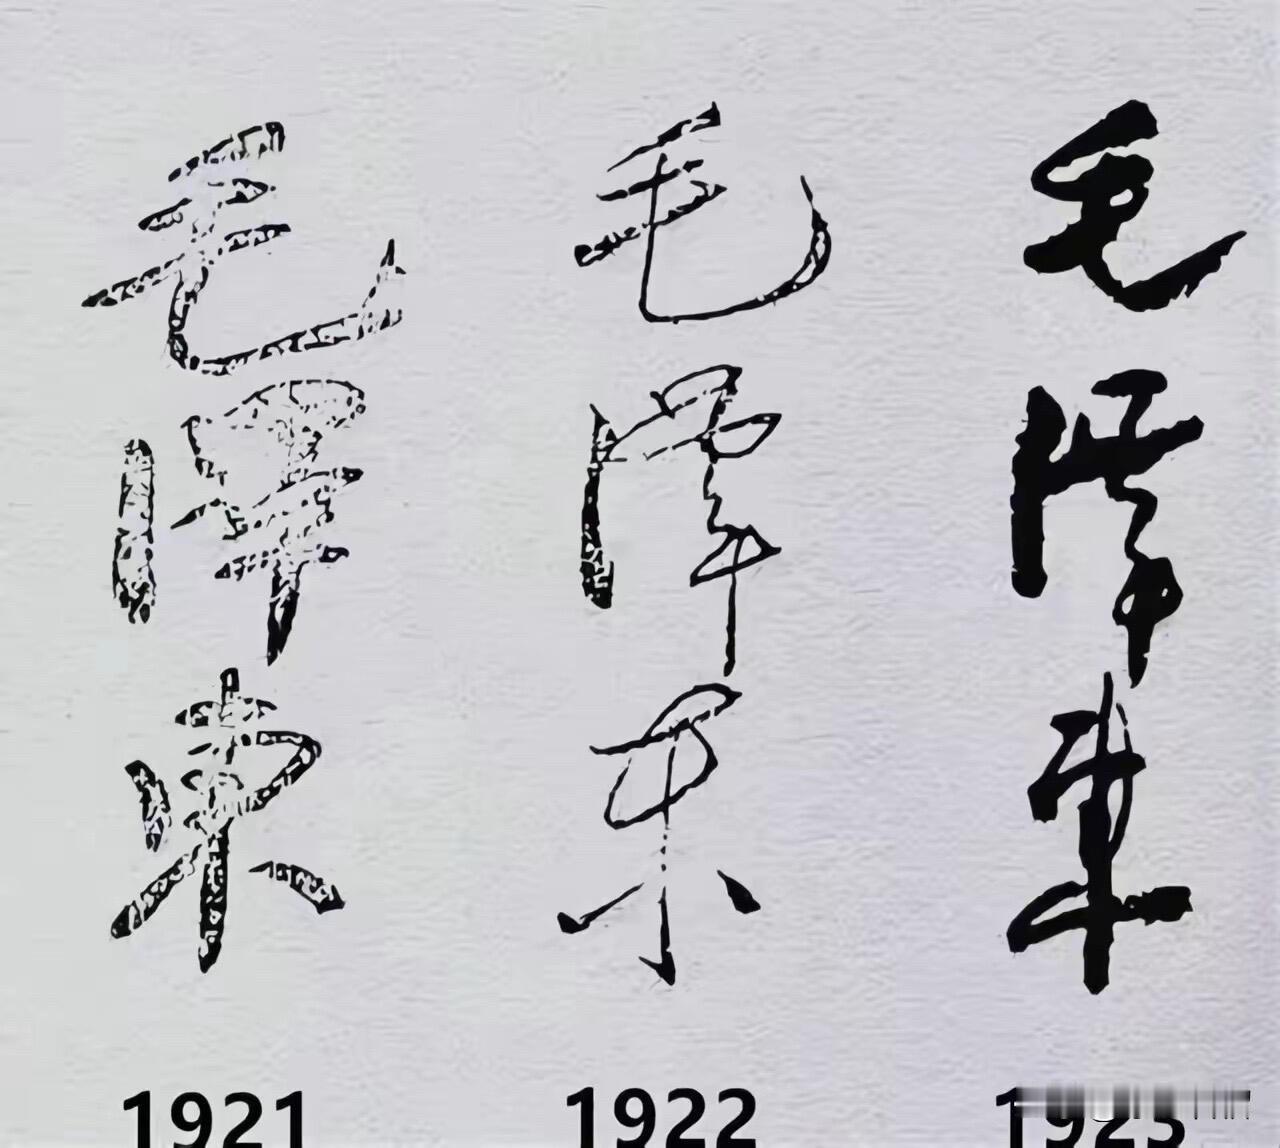 毛澤東
毛澤東
毛澤東
1921
1922
1923